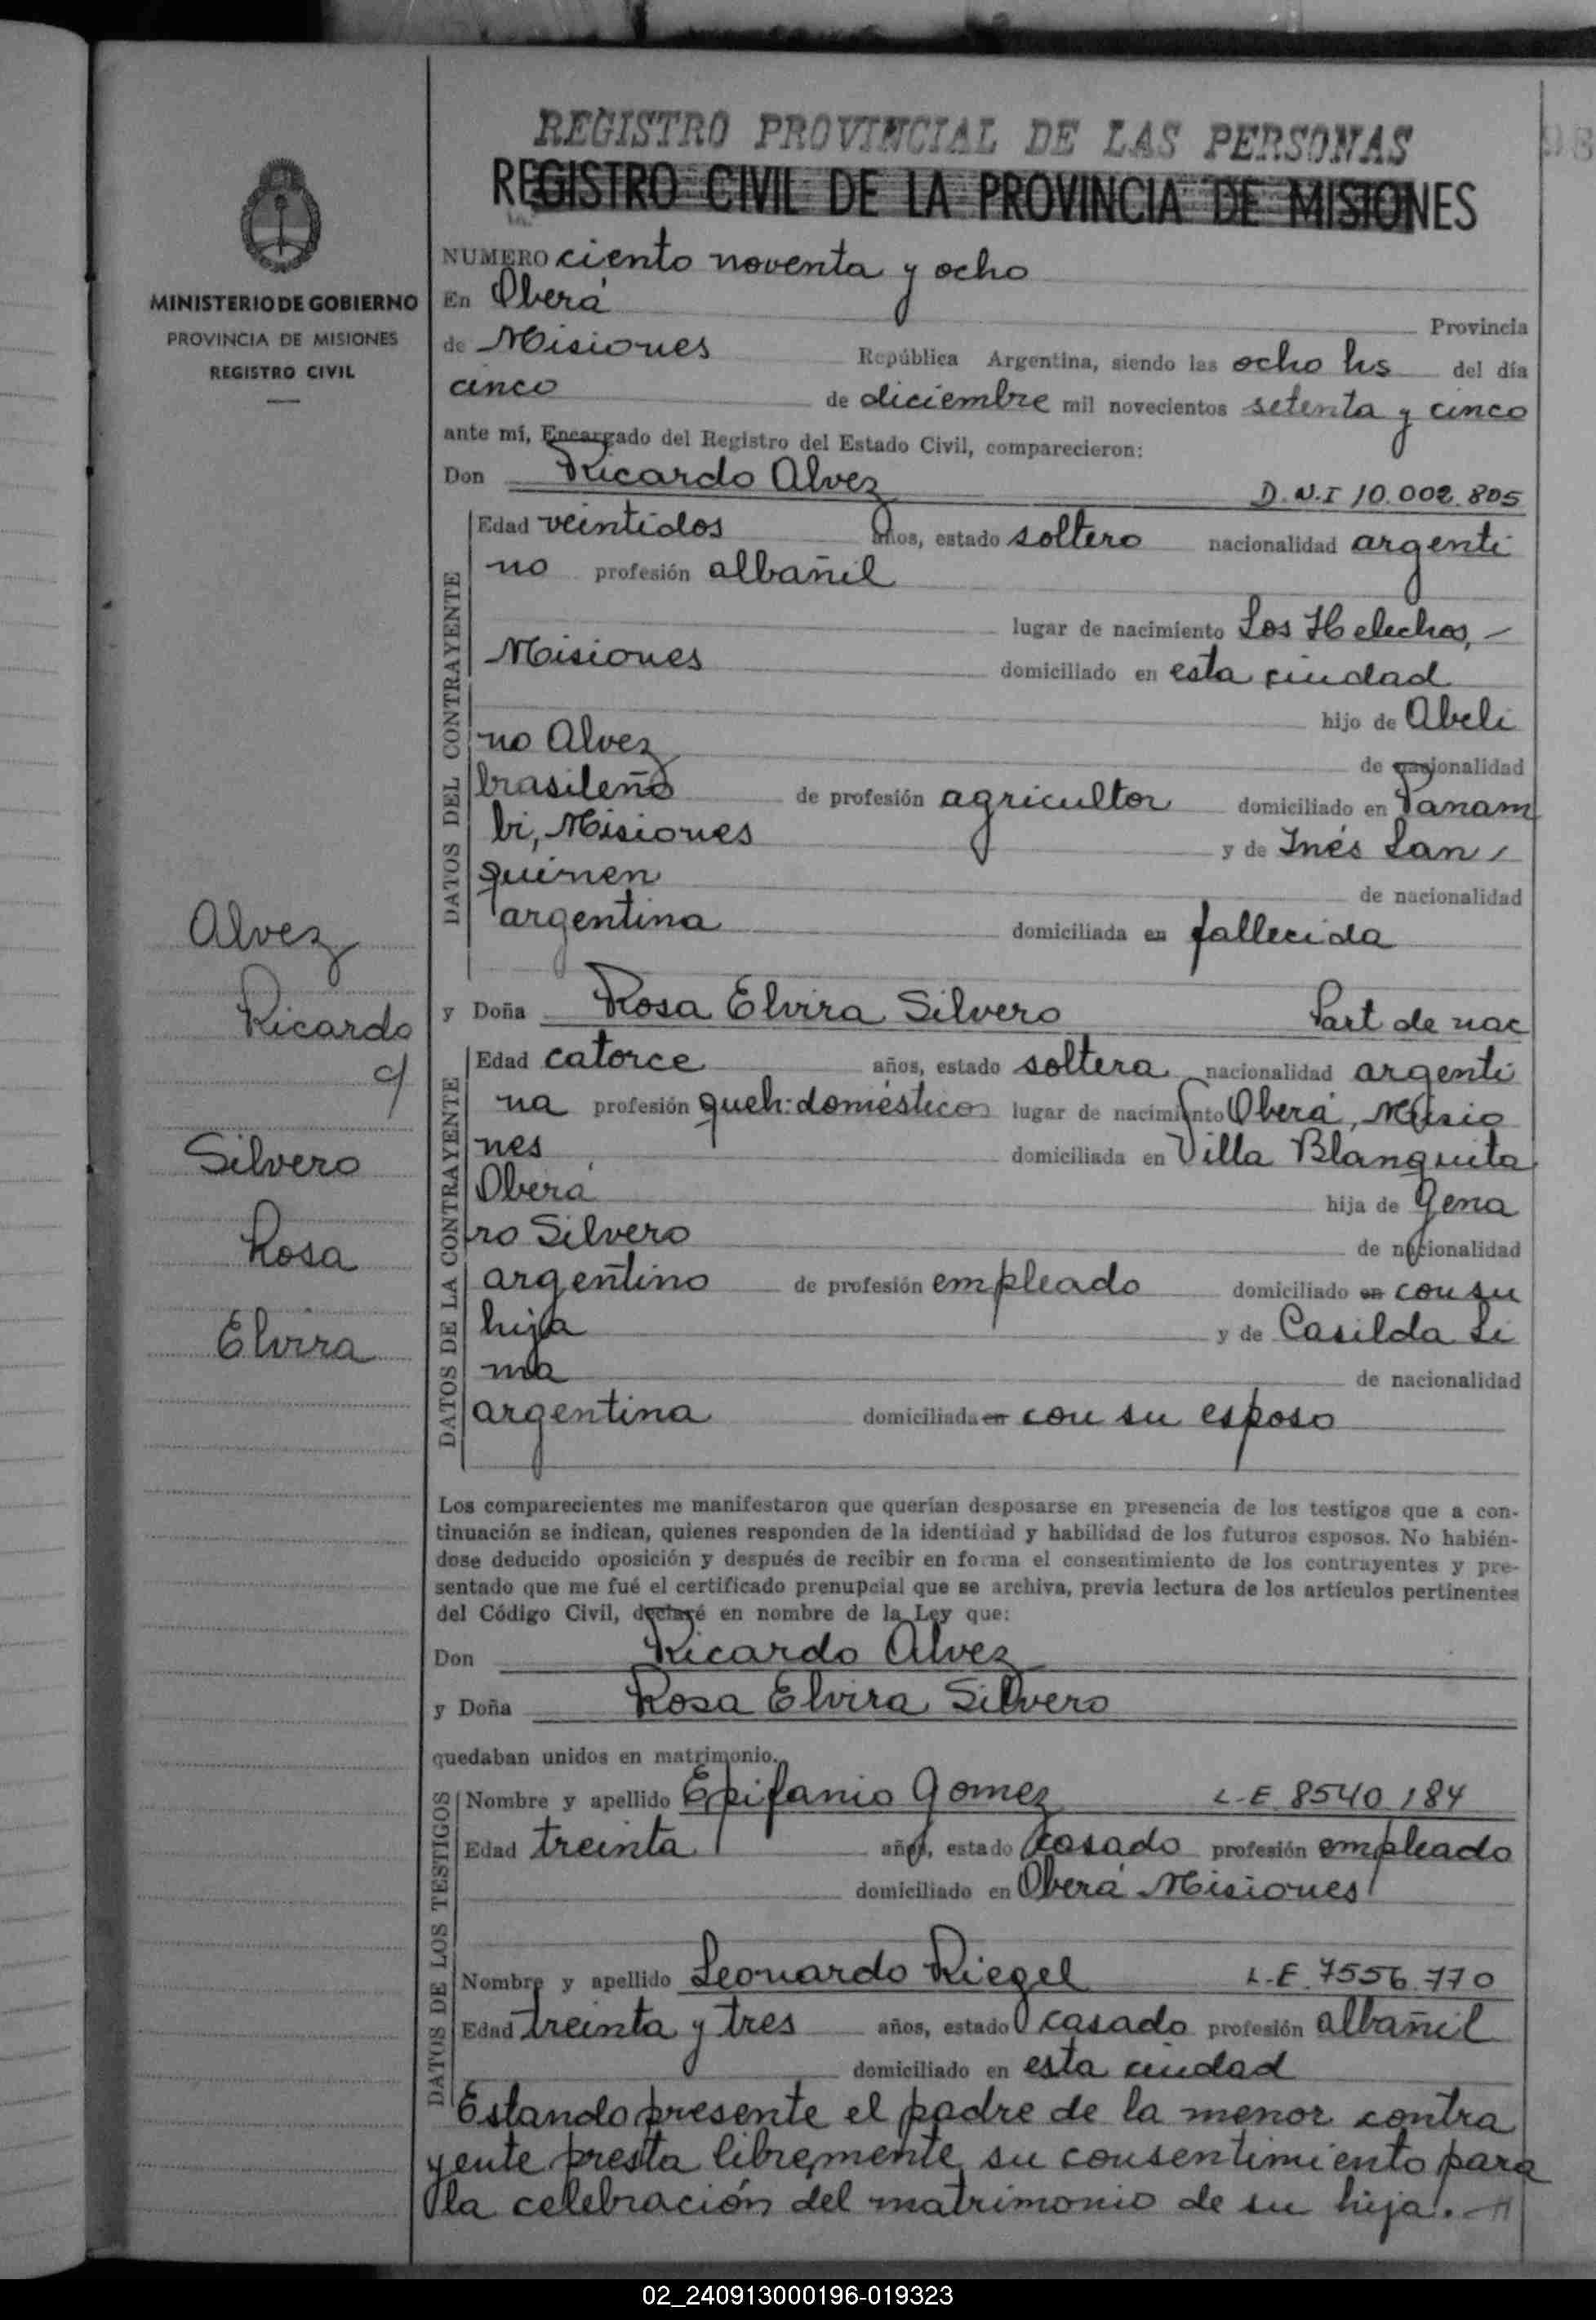 REGISTRO PROVINCIAL DE LAS PERSONAS
REGISTRO CIVIL DE LA PROVINCIA DE MISIONES
MINISTERIO DE GOBIERNO
PROVINCIA DE MISIONES
REGISTRO CIVIL
Alvez
Ricardo
c/
Silvero
Rosa
Elvira
NUMERO ciento noventa y ocho
En Oberá Provincia
de Misiones República Argentina, siendo las ocho hs del día
cinco de diciembre mil novecientos setenta y cinco
ante mí, Encargado del Registro del Estado Civil, comparecieron:
Don Ricardo Alvez D.N.I 10.002.805
DATOS DEL CONTRAYENTE
Edad veintidos años, estado soltero nacionalidad argenti
no profesión albañil
lugar de nacimiento Los Helechos, -
Misiones domiciliado en esta ciudad
hijo de Abeli
no Alvez de nacionalidad
brasileño de profesión agricultor domiciliado en Panam
bi, Misiones y de Inés San /
quinen de nacionalidad
argentina domiciliada en fallecida
y Doña Rosa Elvira Silvero Part de nac
DATOS DE LA CONTRAYENTE
Edad catorce años, estado soltera nacionalidad argenti
na profesión queh: domésticos lugar de nacimiento Oberá, Misio
nes domiciliada en Villa Blanquita
Oberá hija de Gena
ro Silvero de nacionalidad
argentino de profesión empleado domiciliado en con su
hija y de Casilda Li
ma de nacionalidad
argentina domiciliada en con su esposo
Los comparecientes me manifestaron que querían desposarse en presencia de los testigos que a con-
tinuación se indican, quienes responden de la identidad y habilidad de los futuros esposos. No habién-
dose deducido oposición y después de recibir en forma el consentimiento de los contrayentes y pre-
sentado que me fué el certificado prenupcial que se archiva, previa lectura de los artículos pertinentes
del Código Civil, declaré en nombre de la Ley que:
Don Ricardo Alvez
y Doña Rosa Elvira Silvero
quedaban unidos en matrimonio.
DATOS DE LOS TESTIGOS
Nombre y apellido Epifanio Gomez L-E 8540 184
Edad treinta años, estado casado profesión empleado
domiciliado en Oberá Misiones
Nombre y apellido Leonardo Riegel L-E. 7556.770
Edad treinta y tres años, estado casado profesión albañil
domiciliado en esta ciudad
Estando presente el padre de la menor contra
yente presta libremente su consentimiento para
la celebración del matrimonio de su hija. -
02_240913000196-019323